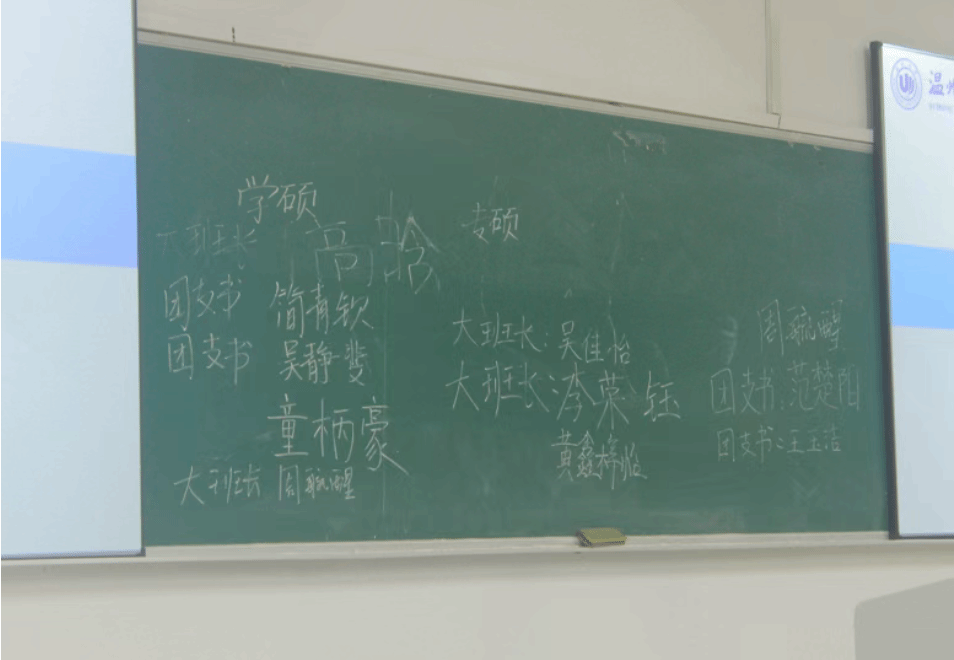 学硕
大班长 高晗
团支书 简青钦
团支书 吴静斐
童柄豪
大班长 周毓醒
专硕
大班长：吴佳怡
大班长：李荣钰
黄鑫
周毓醒
团支书：范楚阳
团支书：王玉洁
温州